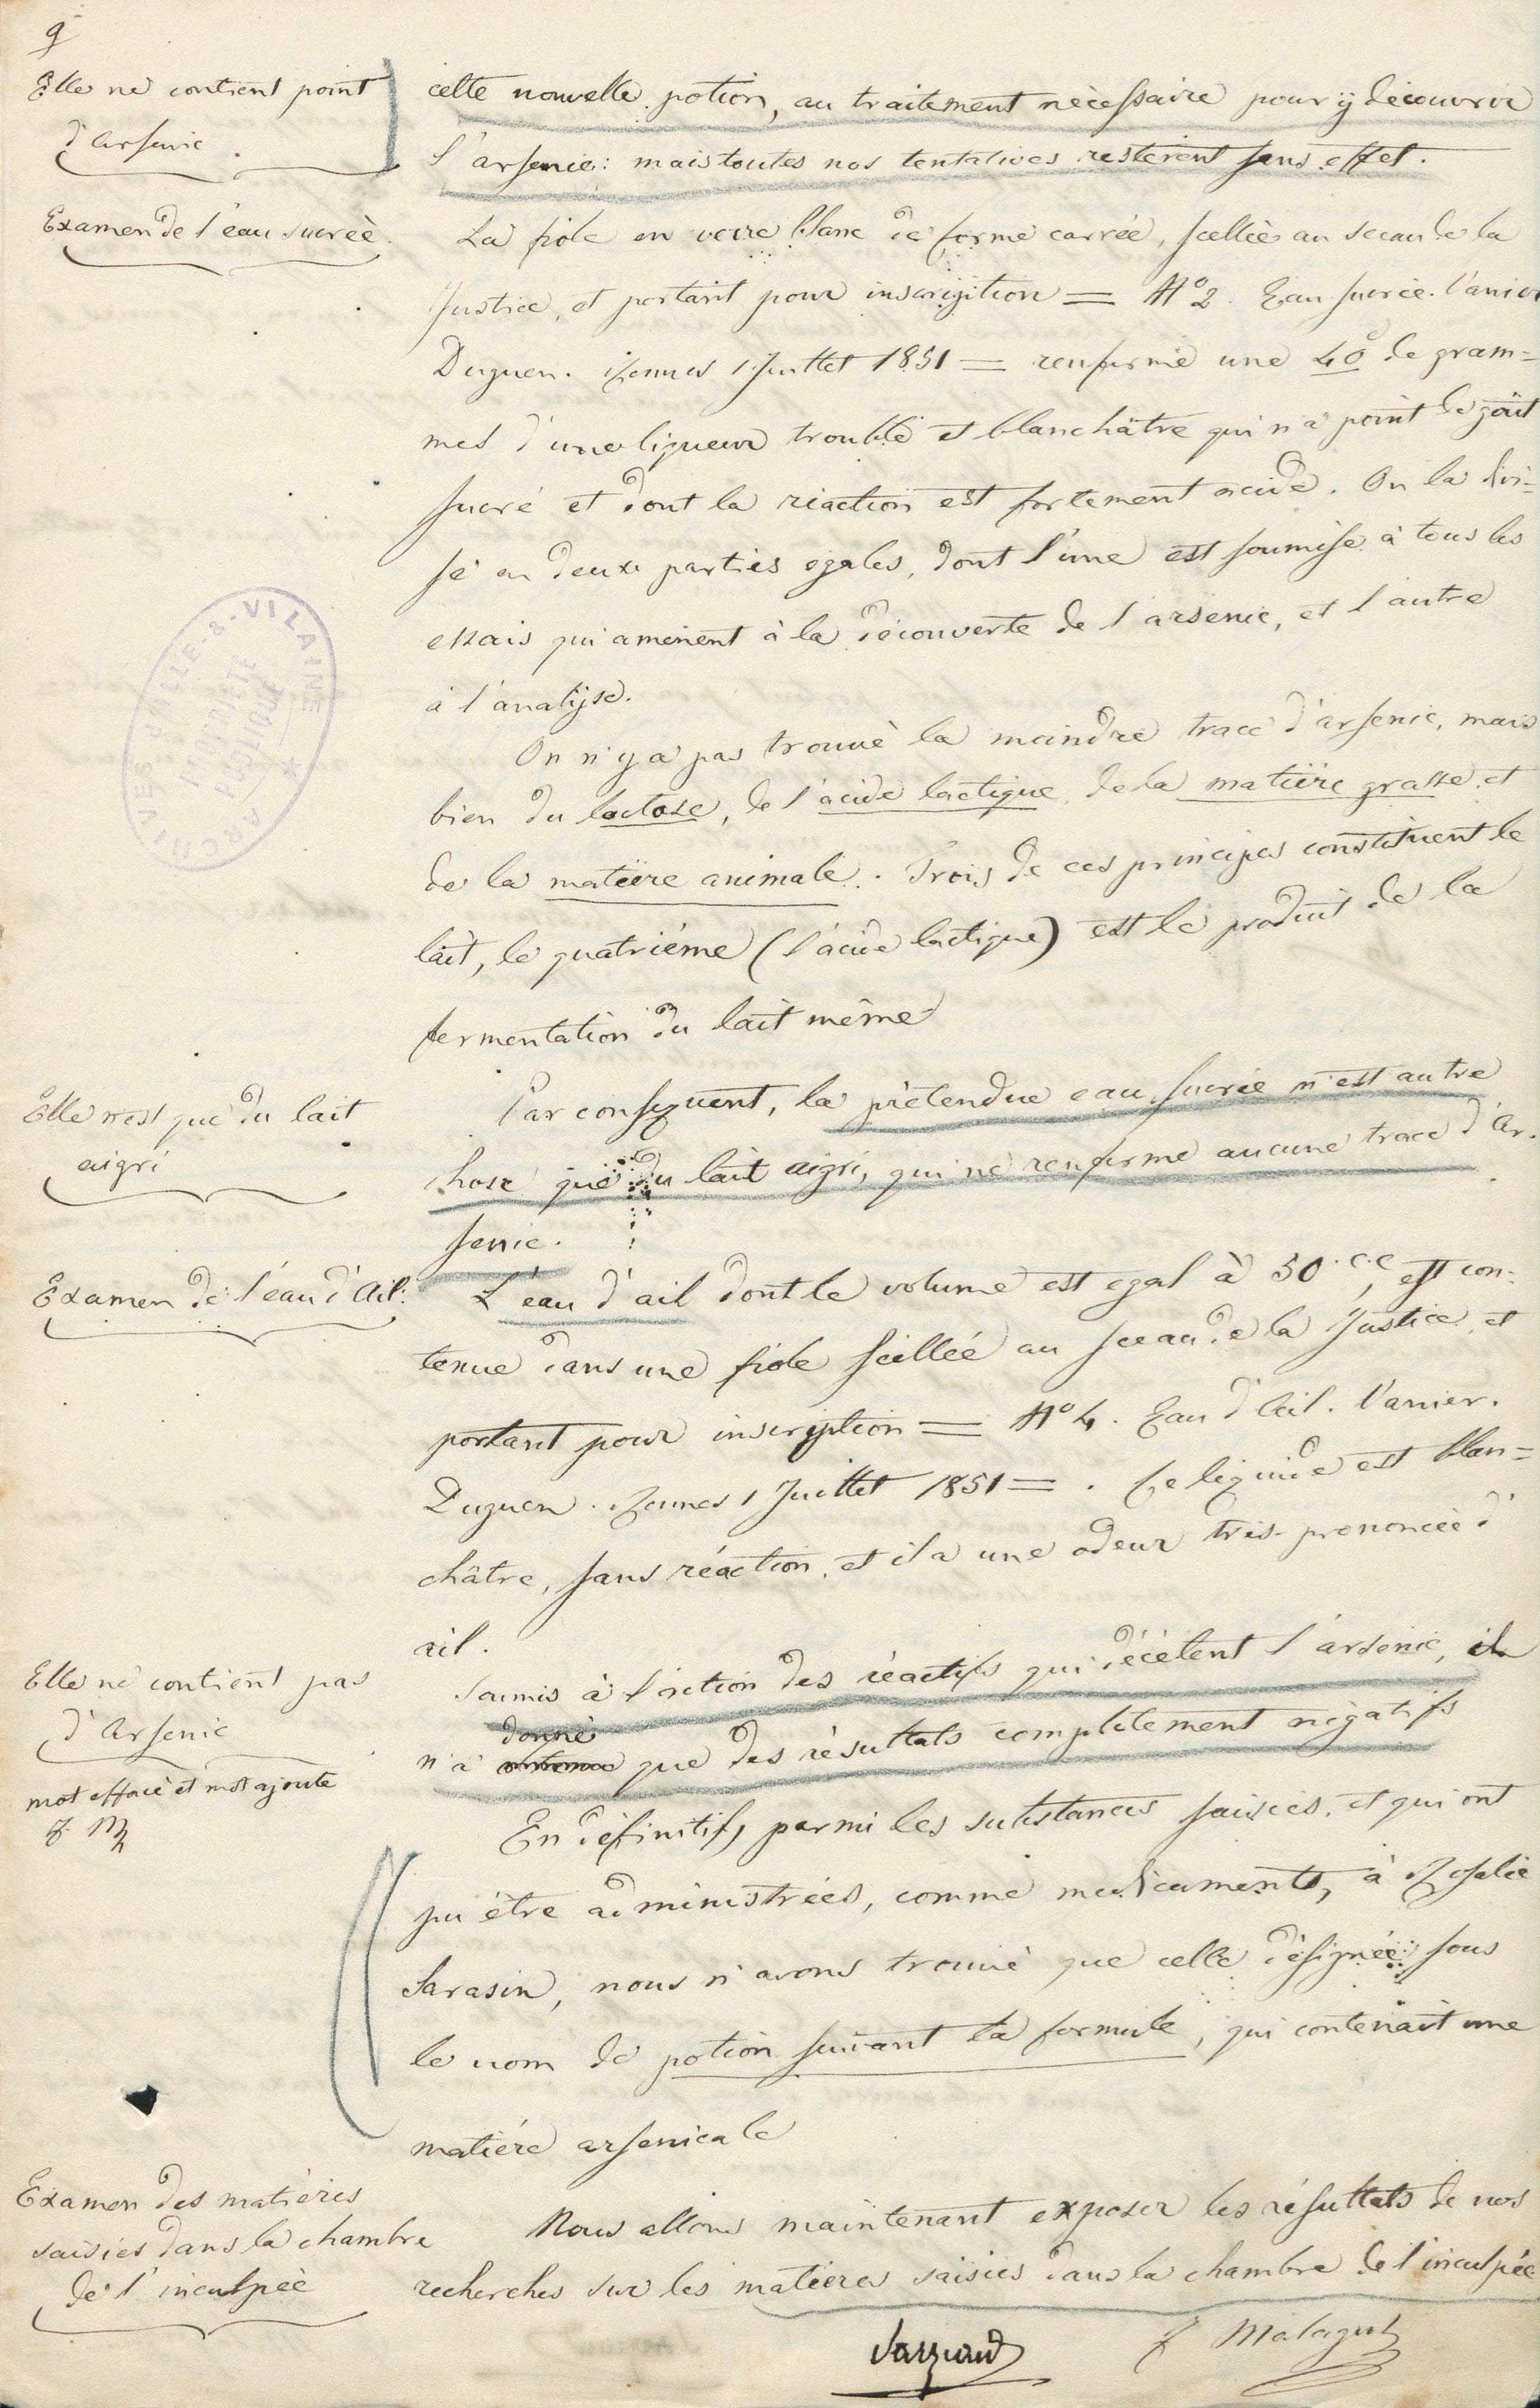 9
Elle ne contient point
d'arsenic.
cette nouvelle potion, au traitement nécessaire pour y découvrir
l'arsenic: mais toutes nos tentatives restèrent sans effet.
Examen de l'eau sucrée
La fiole en verre blanc de forme carrée, scellée au sceau de la
Justice, et portant pour inscription = N° 2. Eau sucrée.
Duguen. Rennes 1 Juillet 1851 = renferme une 40e de gram=
mes d'une liqueur trouble et blanchâtre qui n'a point le goût
sucré et dont la réaction est fortement acide. On la divi=
se en deux parties egales, dont l'une est soumise à tous les
essais qui amènent à la découverte de l'arsenic, et l'autre
à l'analyse.
On n'y a pas trouvé la moindre trace d'arsenic, mais
bien du lactose, de l'acide lactique, de la matière grasse, et
de la matière animale. Trois de ces principes constituent le
lait, le quatrième (l'acide lactique) est le produit de la
fermentation du lait même
Elle n'est que du lait
aigri
Par conséquent, la prétendue eau sucrée n'est autre
chose que du lait aigri, qui ne renferme aucune trace d'ar.
senic.
Examen de l'eau d'ail:
L'eau d'ail dont le volume est egal à 50.c.c, est con=
tenue dans une fiole scellée au sceau de la Justice, et
portant pour inscription = N° 4. Eau d'ail.
Duguen. Rennes 1 Juillet 1851 = . Ce liquide est blan=
châtre, sans réaction, et il a une odeur très-prononcée d'
ail.
Elle ne contient pas
d'Arsenic
Soumis à l'action des réactifs qui décèlent l'arsenic, il
donné
n'a que des résultats complètement négatifs
mot effacé et mot ajouté
En définitif, parmi les substances saisies, et qui ont
pu être administrées, comme médicaments, à Rosalie
Sarasin, nous n'avons trouvé que celle désignée sous
le nom de potion suivant la formule, qui contenait une
matière arsenicale
Examen des matières
saisies dans la chambre
de l'inculpée
Nous allons maintenant exposer les résultats de nos
recherches sur les matières saisies dans la chambre de l'inculpée
Sarzeaud
F Malaguti
ARCHIVES D'ILLE-&-VILAINE
PROPRIETE
PUBLIQUE